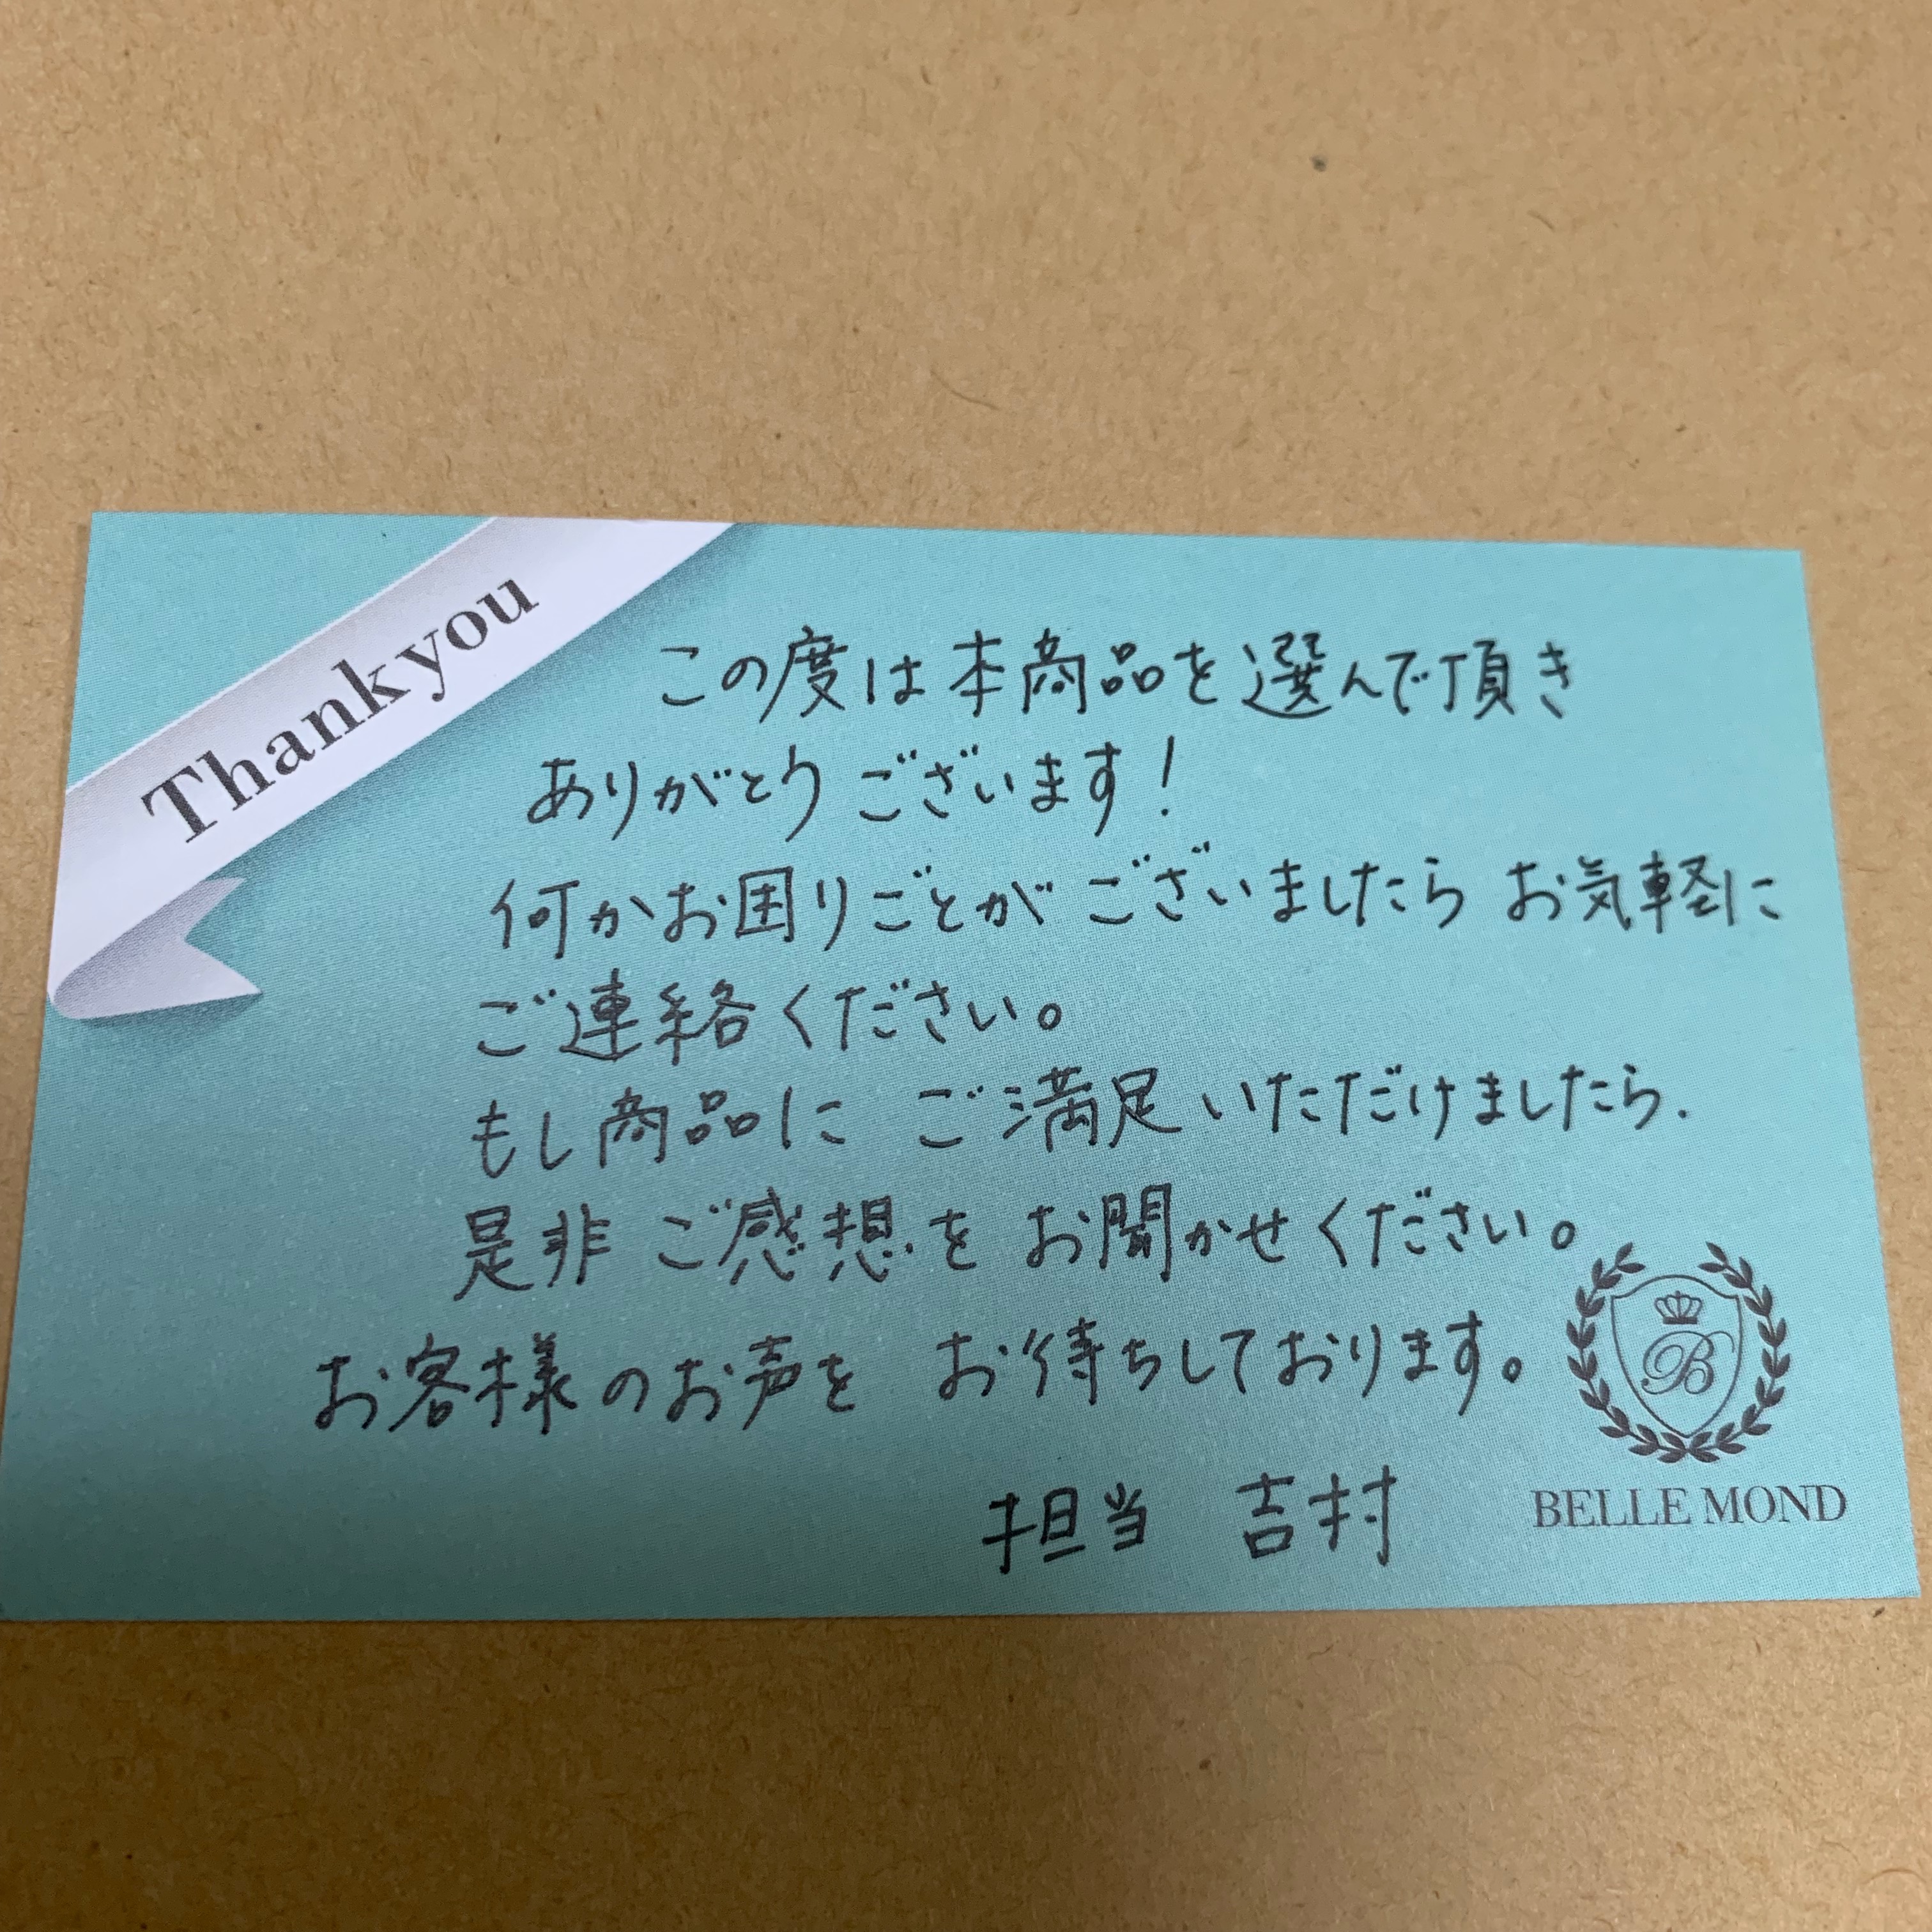 Thank you
この度は本商品を選んで頂き
ありがとうございます!
何かお困りごとがございましたら お気軽に
ご連絡ください。
もし商品に ご満足いただけましたら.
是非 ご感想を お聞かせください。
お客様のお声を お待ちしております。
担当 吉村
B
BELLE MOND